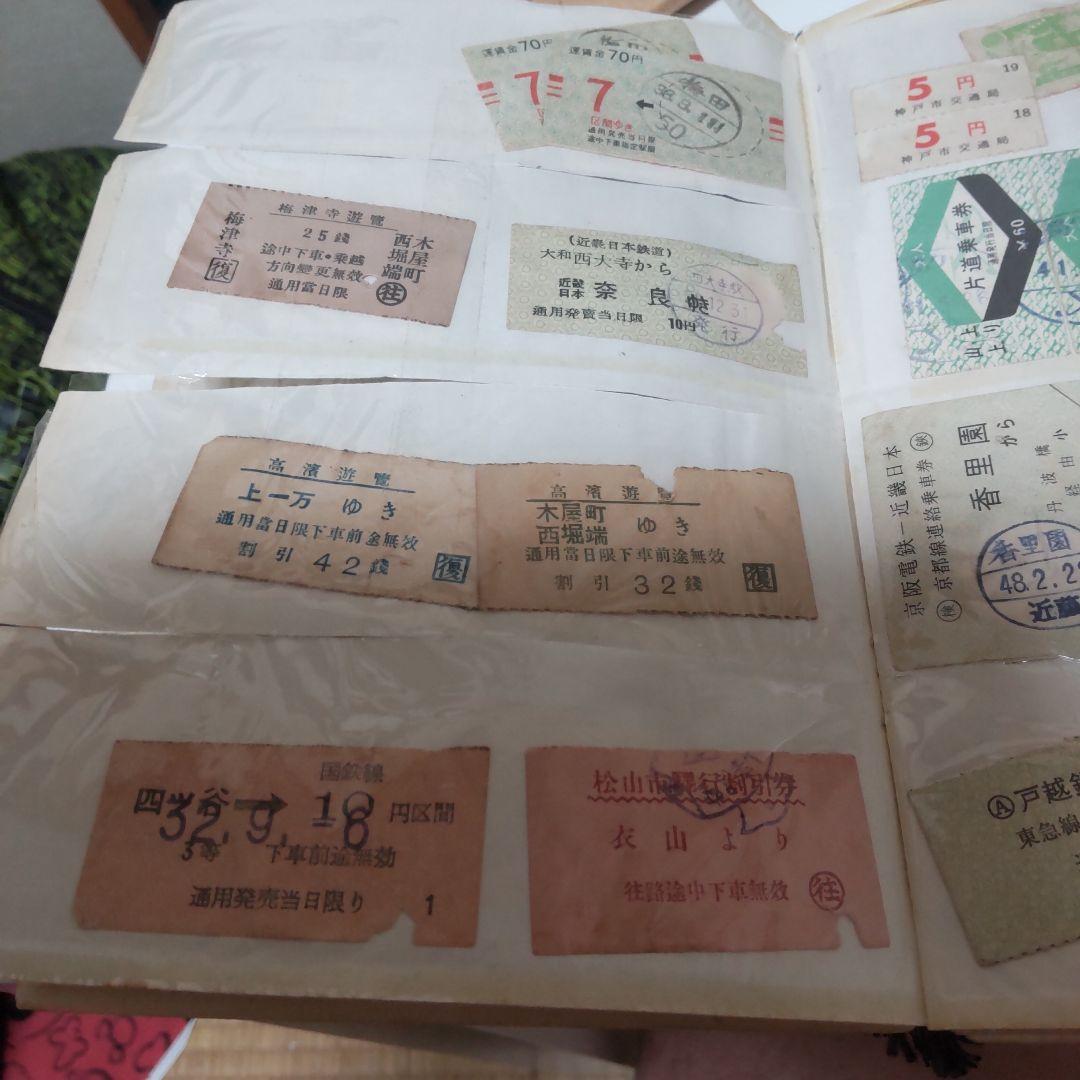 運賃金70円
7
運賃金70円
7
区間歩き
通用発売当日限
途中下車指定駅限
梅田
梅津寺遊覽
25錢
途中下車・乗越
方向變更無效
通用當日限
梅津寺
復
木屋町
西堀端
往
(近畿日本鉄道)
大和西大寺から
近畿日本
奈良ゆき
通用発賣当日限
10円
発行
高濱遊覽
上一万ゆき
通用當日限下車前途無效
割引42錢
復
高濱遊覽
木屋町
西堀端
ゆき
通用當日限下車前途無效
割引32錢
復
国鉄線
四ツ谷→10円区間
32.9.-6
3等 下車前途無効
通用発売当日限り
1
松山市驛行割引券
衣山より
往路途中下車無效
往
5円
19
神戸市交通局
5円
18
神戸市交通局
片道乗車券
¥60
京阪電鉄-近畿日本
京都線連絡乗車券
鉄
検
香里園
から
丹波橋
経由
小
香里園
48.2.2
A戸越
東急線